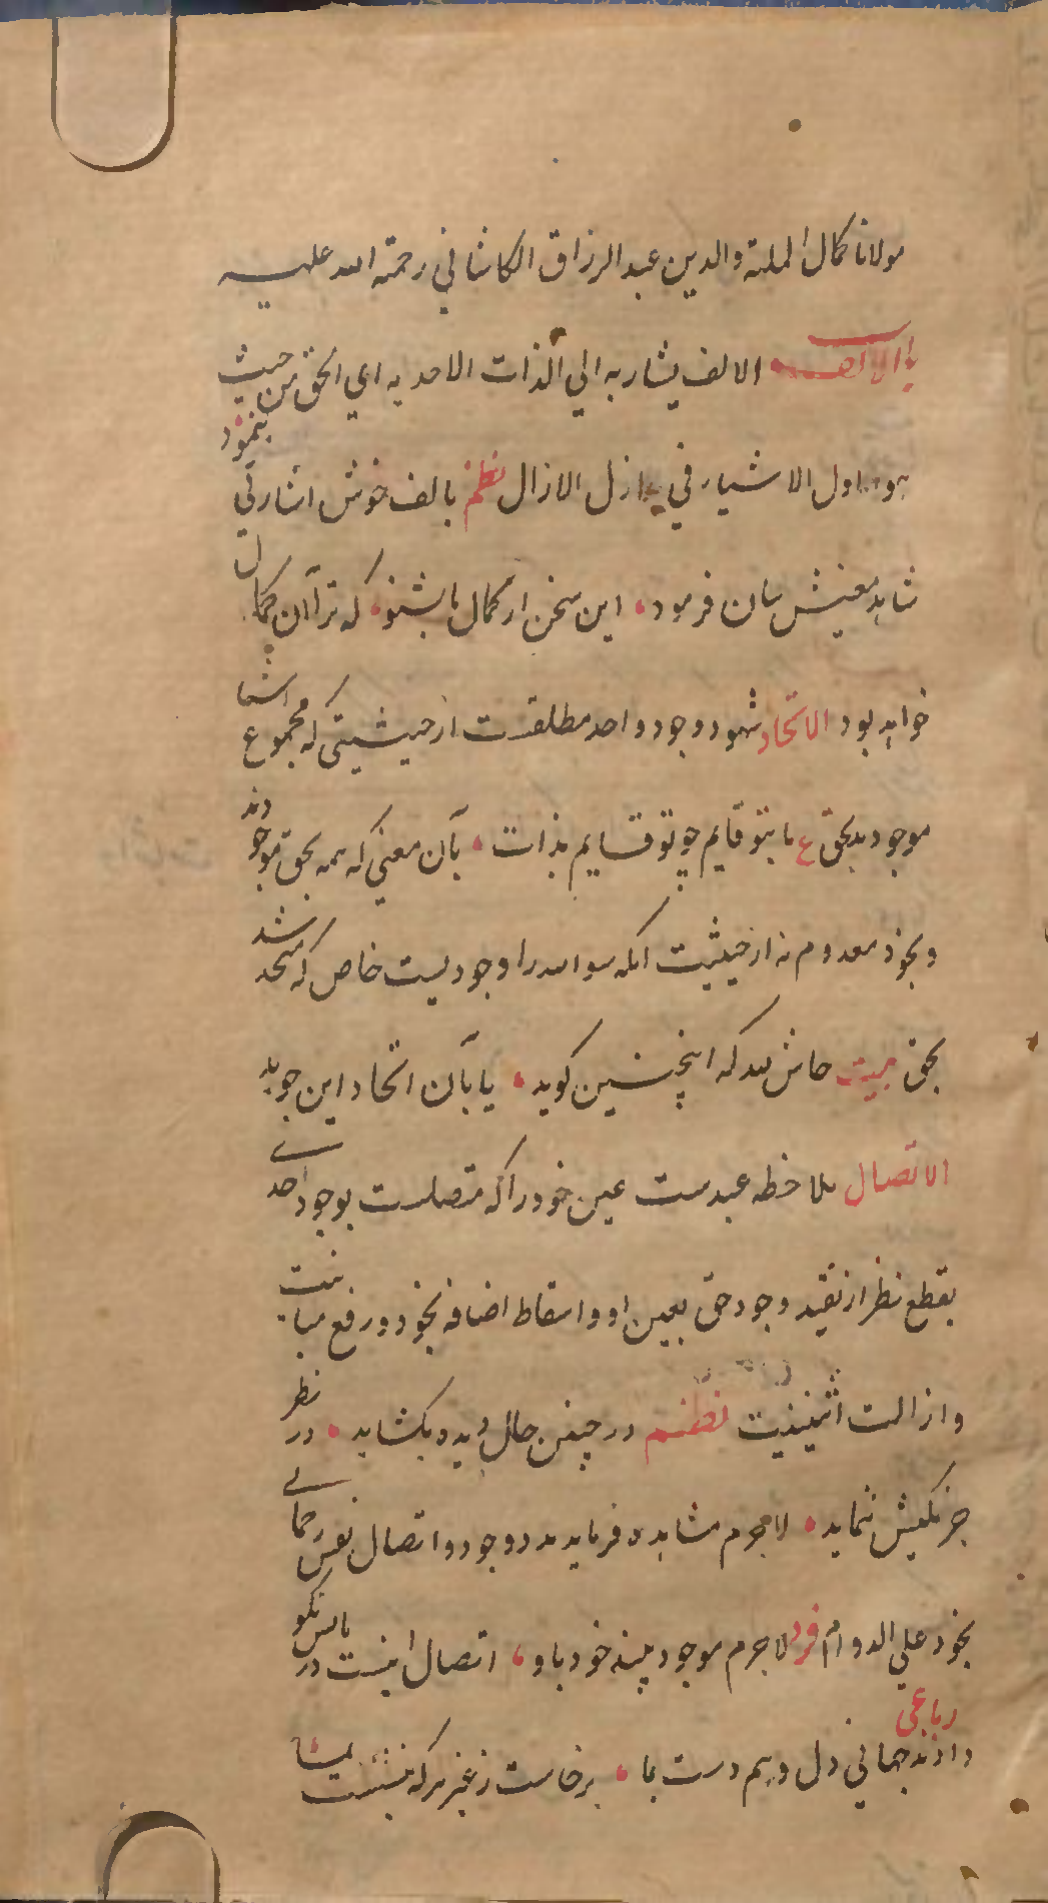 مولانا کمال الملة والدین عبد الرزاق الکاشانی رحمة الله علیه
باب الالف الالف یشار به الی الذات الاحدیه ای الحق من حیث
هو اول الاشیاء فی ازل الازال نظم بالف خوش اشارتی بنمود
شاید معنیش بیان فرمود این سخن از کمال ما بشنو که ترا آن کمال
خواهد بود الاتحاد شهود وجود واحد مطلقست از حیثیتی که مجموع اشیا
موجودند بحق ع ما بتو قایم چو تو قایم بذات بآن معنی که همه بحق موجودند
و بخود معدوم نه از حیثیت آنکه سوا الله را وجودیست خاص که متحد شد
بحق بیت حاش لله که اینچنین گوید یا بآن اتحاد این جوید
الاتصال ملاحظه عبدست عین خود را که متصلست بوجود احدی
بقطع نظر از تقید وجود حق بعین او و اسقاط اضافه بخود و رفع مباینت
و ازالت اثنینیت نظم در چنین حال دیده بگشاید در نظر
جز یکیش ننماید لاجرم مشاهده فرماید مدد وجود و اتصال نفس رحمانی
بخود علی الدوام فرد لاجرم موجود بیند خود باو اتصال اینست دریابش نکو
رباعی
دادند جهانی دل و هم دست بما برخاست ز غیر هر که بنشست بما